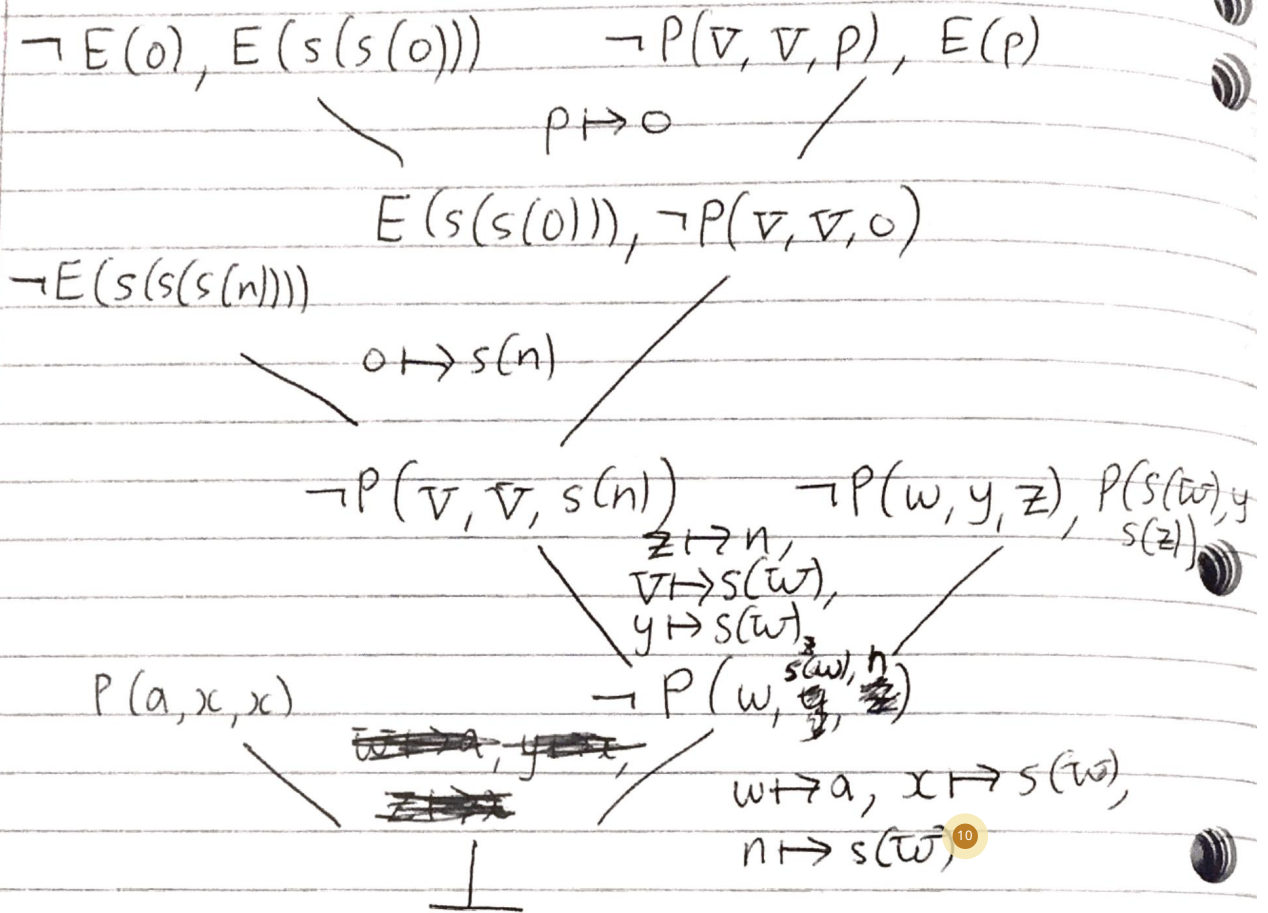 ¬E(0), E(s(s(0))) ¬P(v, v, p), E(p)
p ↦ 0
E(s(s(0))), ¬P(v, v, 0)
¬E(s(s(s(n))))
0 ↦ s(n)
¬P(v, v, s(n)) ¬P(w, y, z), P(s(w), y
s(z))
z ↦ n,
v ↦ s(w),
y ↦ s(w)
P(a, x, x) ¬P(w, s(w), n)
w ↦ a, x ↦ s(w),
n ↦ s(w)
10
⊥